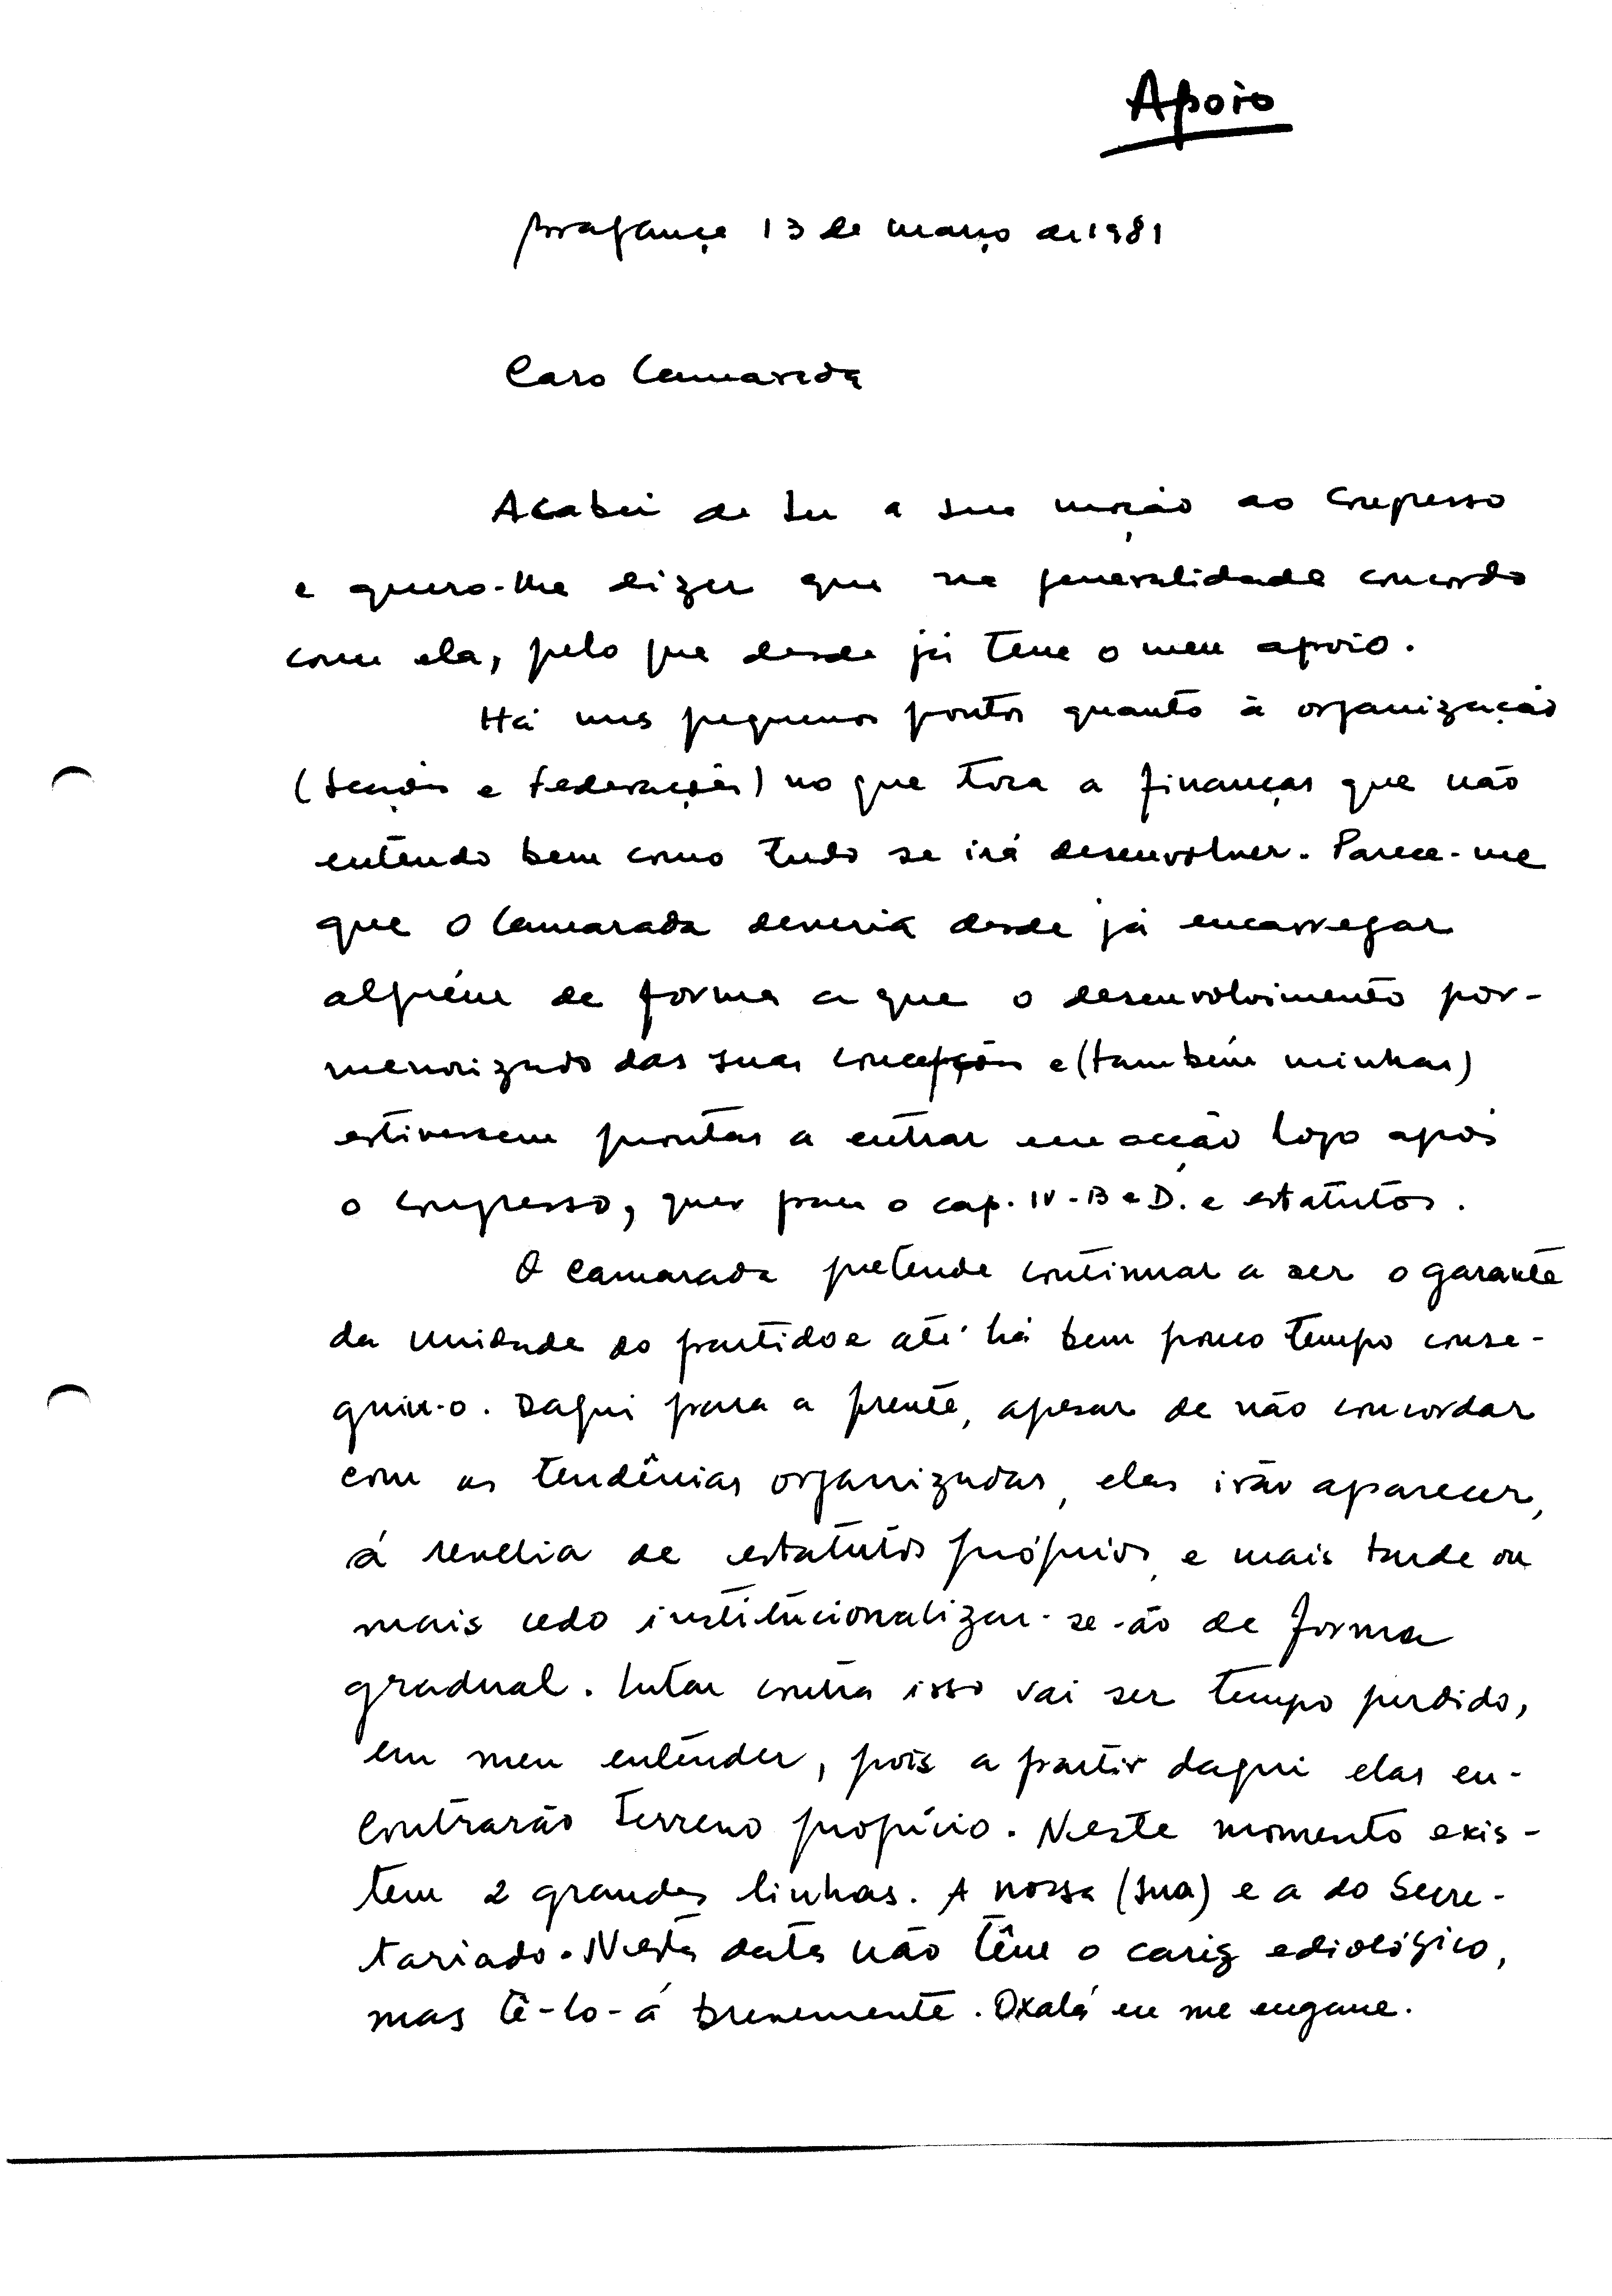 Apoio
Bragança 13 de março de 1981
Caro Camarada
Acabei de ler a sua moção ao Congresso
e quero-lhe dizer que na generalidade concordo
com ela, pelo que desde já tem o meu apoio.
Há uns pequenos pontos quanto à organização
(secções e Federações) no que toca a finanças que não
entendo bem como tudo se irá desenvolver. Parece-me
que o Camarada deveria desde já encarregar
alguém de forma a que o desenvolvimento por-
menorizado das suas concepções e (também minhas)
estivessem prontas a entrar em acção logo após
o congresso, quer para o cap. IV-B e D. e estatutos.
O Camarada pretende continuar a ser o garante
da unidade do partido e até há bem pouco tempo conse-
guiu-o. Daqui para a frente, apesar de não concordar
com as tendências organizadas, elas irão aparecer,
á revelia de estatutos próprios, e mais tarde ou
mais cedo institucionalizar-se-ão de forma
gradual. Lutar contra isso vai ser tempo perdido,
em meu entender, pois a partir daqui elas en-
contrarão terreno propício. Neste momento exis-
tem 2 grandes linhas. A nossa (sua) e a do Secre-
tariado. Nesta data não têm o cariz ediológico,
mas tê-lo-á brevemente. Oxalá eu me engane.